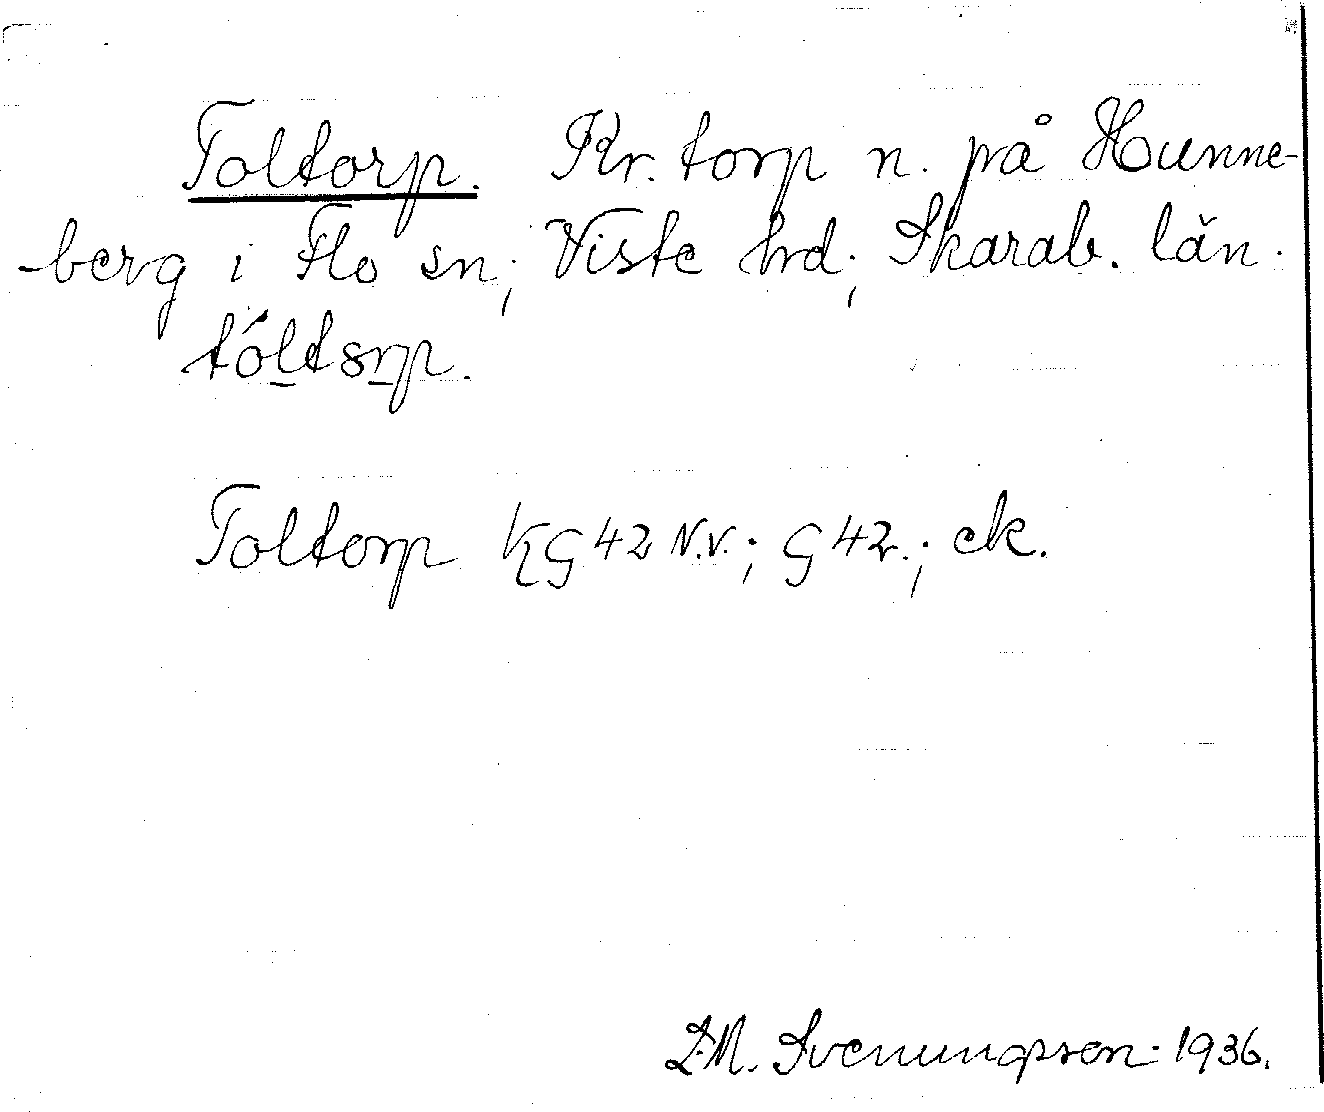 Toltorp. Kr. torp n. på Hunne-
berg i Flo sn; Viste hrd; Skarab. län.
tóltsrp.
Toltorp KG42 N.V.; G42.; ek.
D.M. Svenungsson 1936.